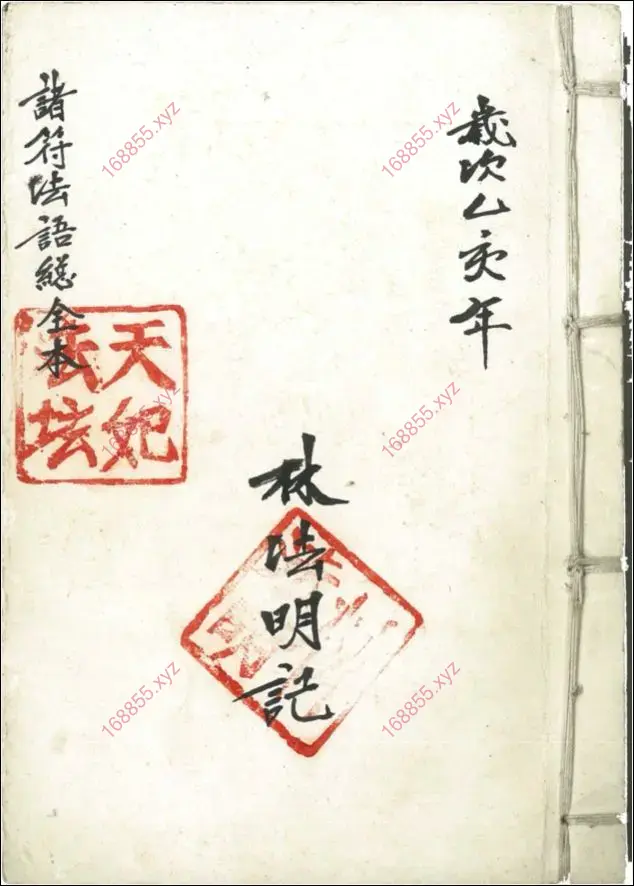 歲次乙亥年
林法明記
諸符法語總全本
天妃
法坛
168855.xyz
168855.xyz
168855.xyz
168855.xyz
168855.xyz
168855.xyz